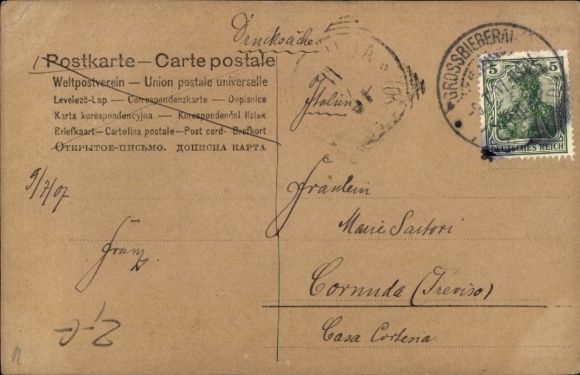 Drucksache
Postkarte — Carte postale
Weltpostverein — Union postale universelle
Levelező-Lap — Correspondenzkarte — Dopisnice
Karta korespondencyjna — Korespondenční lístek
Briefkaart — Cartolina postale — Post card — Brefkort
ОТКРЫТОЕ ПИСЬМО. ДОПИСНА КАРТА
GROSSBIEBERAU
5 5
DEUTSCHES REICH
Italien
9/7/07
Fräulein
Marie Sartori
Franz
Cornuda (Treviso)
Casa Cortena